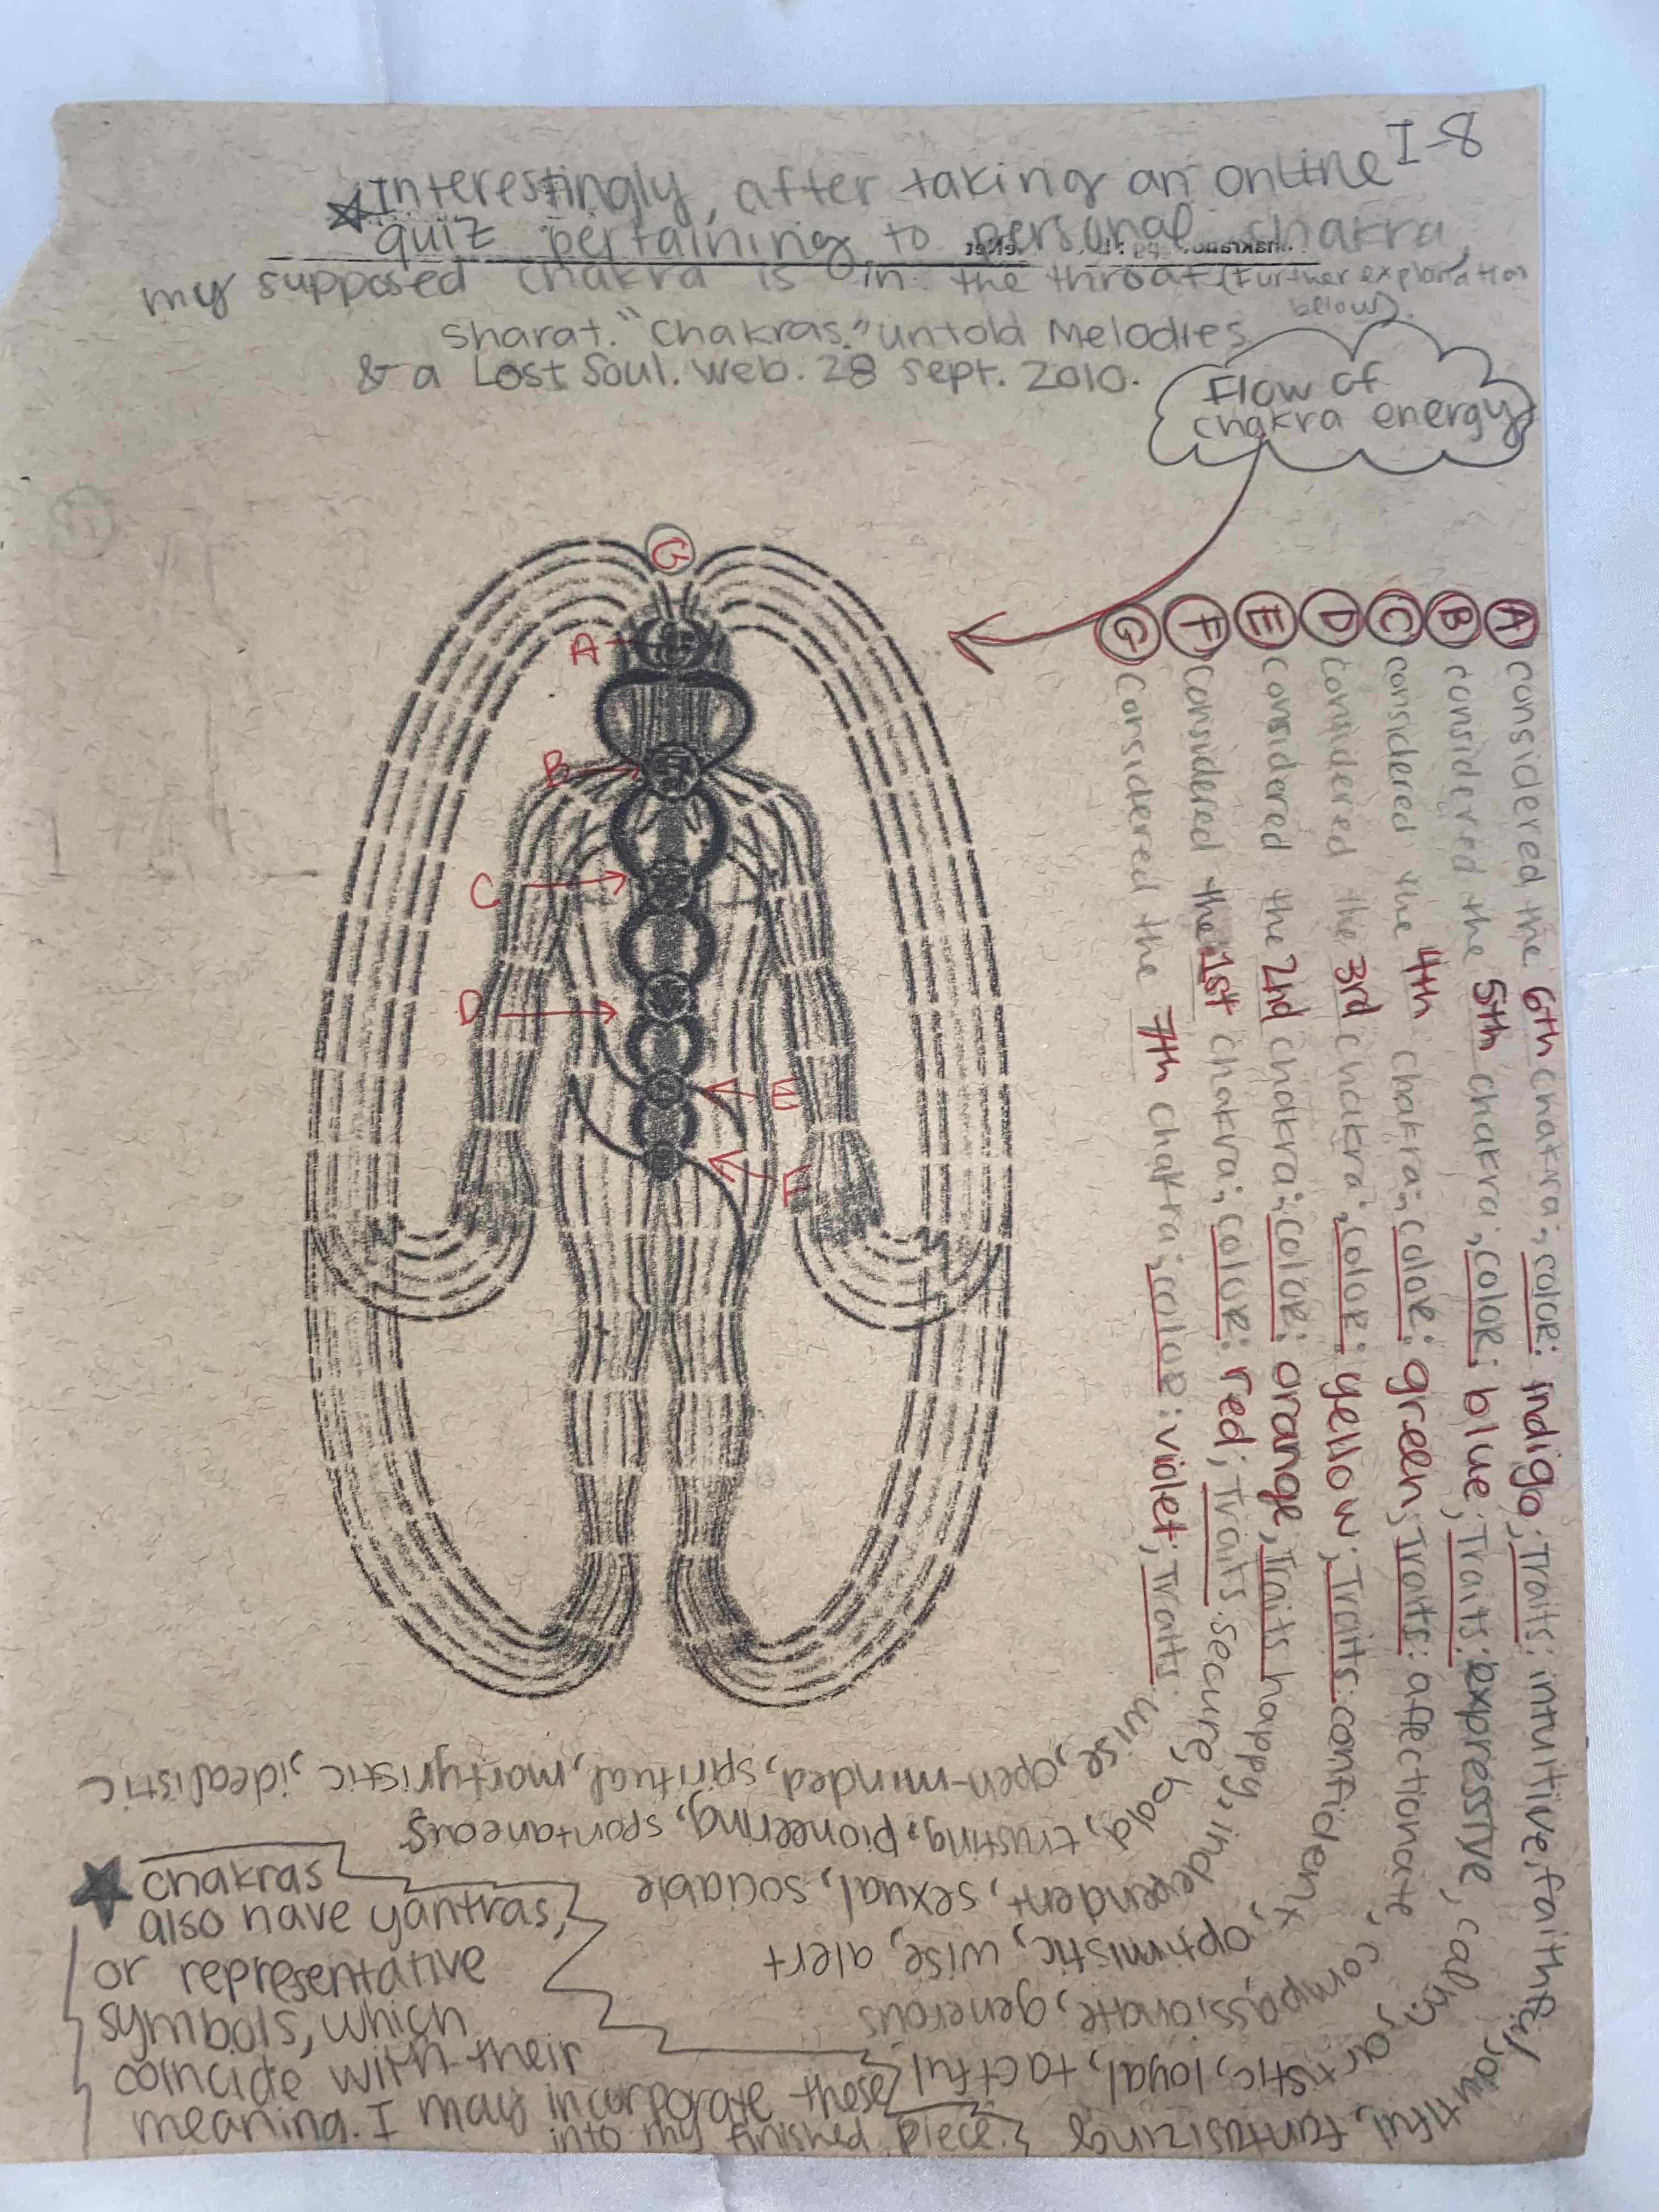 I-8
Interestingly, after taking an online
quiz pertaining to personal chakra,
my supposed chakra is in the throat (Further exploration
below).
Sharat. "Chakras." Untold Melodies
& a Lost Soul. Web. 28 Sept. 2010.
Flow of
chakra energy
G
A
B
C
D
E
F
A considered the 6th chakra; color: indigo; Traits: intuitive, faithful, dutiful, fantasizing
B considered the 5th chakra; color: blue; Traits: expressive, calm, artistic, loyal, tactful
C considered the 4th chakra; color: green; Traits: affectionate, compassionate, generous
D considered the 3rd chakra; color: yellow; Traits: confident, optimistic, wise, alert
E considered the 2nd chakra; color: orange; Traits happy, independent, sexual, sociable
F considered the 1st chakra; color: red; Traits: secure, bold, trusting, pioneering, spontaneous
G considered the 7th chakra; color: violet; Traits: wise, open-minded, spiritual, martyristic, idealistic
chakras
also have yantras,
or representative
symbols, which
coincide with their
meaning. I may incorporate these
into my finished piece.